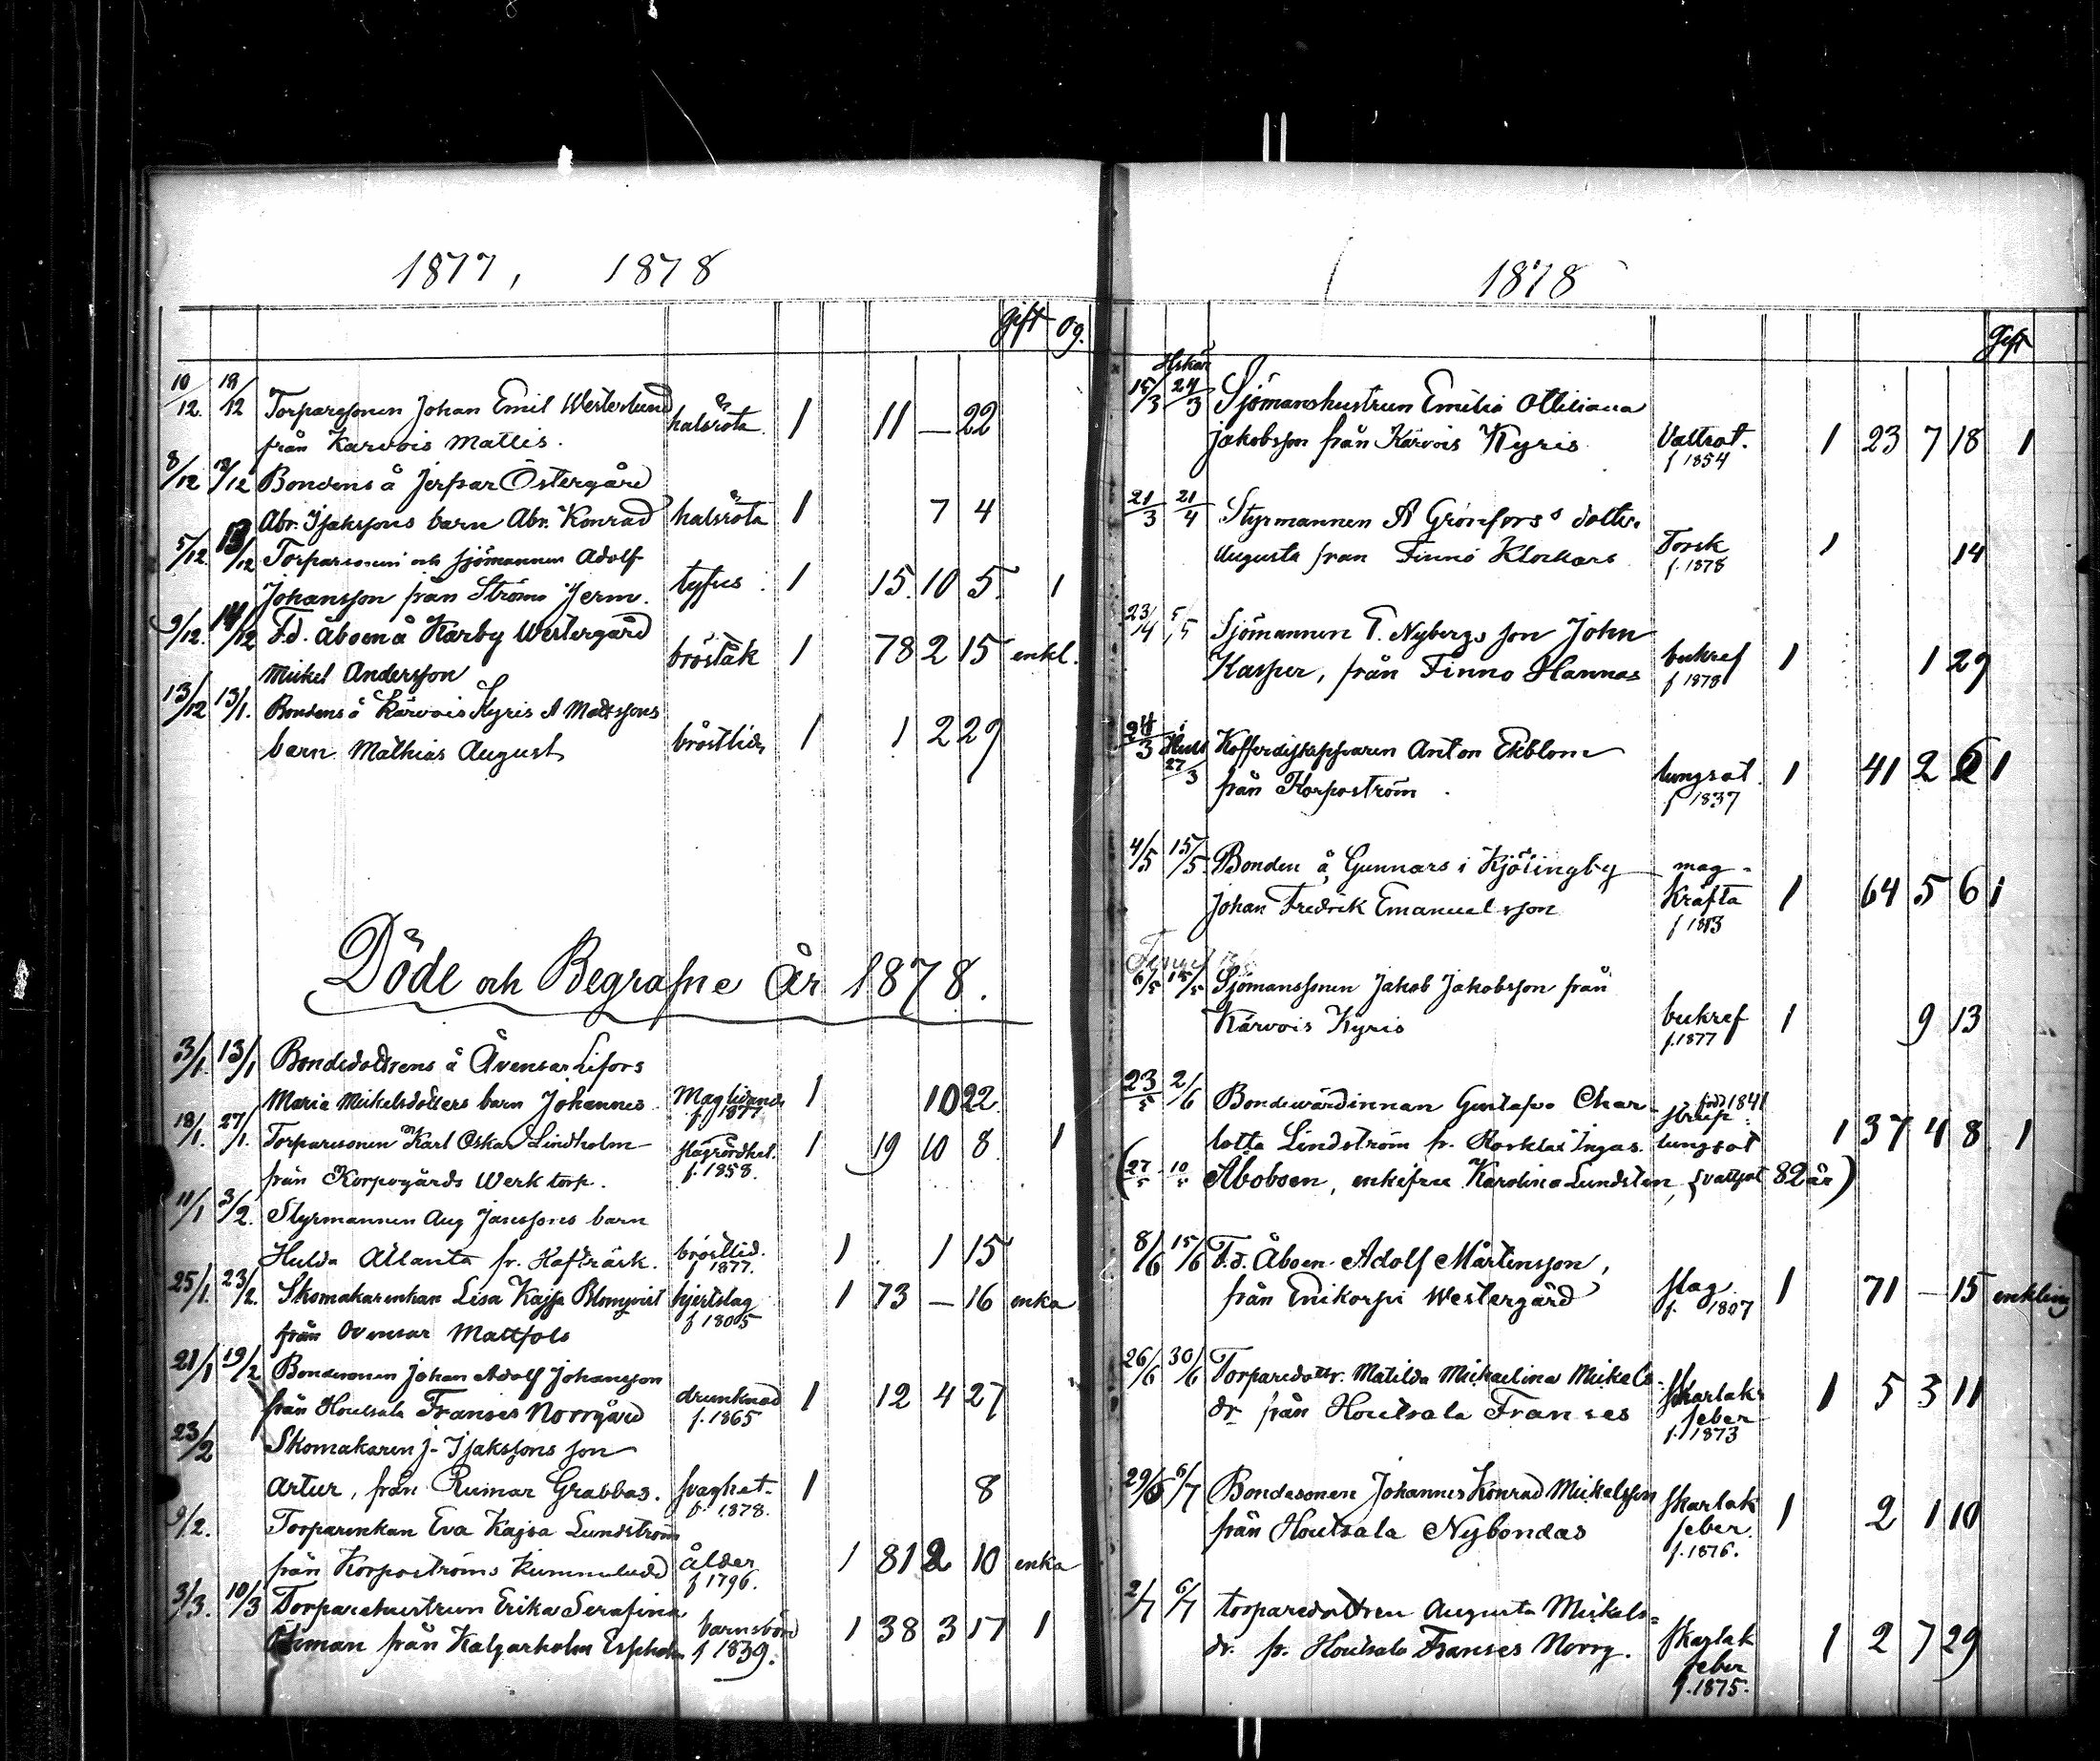 1877, 1878
gift Og.
10/12. 19/12 Torparesonen Johan Emil Westerlund
från Karvois Mattis. halsröta 1 11 — 22
8/12 13/12 Bondens å Jerpar Östergård
Abr. Isakssons barn Abr. Konrad halsröta 1 7 4
5/12 13/12 Torparesonen och sjömannen Adolf
Johansson från Ströms Jerm. tyfus 1 15 10 5 1
9/12. 14/12 F.d. åboen å Kärby Westergård
Mikel Andersson bröståk 1 78 2 15 enkl.
13/12 13/1. Bondens å Kärvois Kyris A Mattssons
barn Mathias August bröstlid. 1 1 2 29
Döde och Begrafne År 1878.
3/1. 13/1 Bondedottrens å Åvensar Lifors
Maria Mickelsdotters barn Johannes Maglidande f. 1877 1 10 22
18/1. 27/1. Torparesonen Karl Oskar Lindholm
från Korpogårds Werk torp. f. 1858. 1 19 10 8 1
11/1 3/2. Styrmannen Aug Janssons barn
Hulda Atlanta fr. Hafträsk. bröstlid. f 1877. 1 1 15
25/1. 23/2. Skomakarenkan Lisa Kajsa Blomqvist
från Ovensar Mattsols hjertslag f 1805 1 73 — 16 enka
21/1 19/2 Bondesonen Johan Adolf Johansson
från Houtsala Franses Norrgård drunknad f. 1865 1 12 4 27
23/2 Skomakaren J. Isakssons son
Artur, från Rumar Grabbas. svaghet. f. 1878. 1 8
9/2. Torparenkan Eva Kajsa Lundström
från Korpoströms Kummeludd ålder f 1796. 1 81 2 10 enka
3/3. 10/3 Torparehustrun Erika Serafina
Öhman från Kalgarholm Espholm barnsbörd f 1839. 1 38 3 17 1
1878
Gift
15/3 Hskär 24/3 Sjömanshustrun Emilia Ottiliana
Jakobsson från Kärvois Kyris Vattsot. f 1854 1 23 7 18 1
21/3 21/4 Styrmannen A Grönfors's dotter
Augusta från Finnö Klockars Torsk f. 1878 1 14
23/4 5/5 Sjömannen T. Nybergs son John
Kasper, från Finnö Hannas bukref f 1878 1 1 29
24/3 i Hels 27/3 Kofferdiskepparen Anton Ekblom
från Korpoström lungsot f 1837 1 41 2 6 1
4/5 15/5 Bonden å Gunnars i Kjölingby
Johan Fredrik Emanuelsson mag-kräfta f 1813 1 64 5 6 1
6/5 15/5 Sjömanssonen Jakob Jakobsson från
Kärvois Kyris bukref f. 1877 1 9 13
23/5 2/6 Bondewärdinnan Gustafva Char-
lotta Lindström fr. Rosklax Ingas. född 1841 lungsot 1 37 4 8 1
(27/5 10/5 Åboboen, enkefru Karolina Lundsten, vattsot 82 år)
8/6 15/6 F.d. Åboen Adolf Mårtensson,
från Enikorpi Westergård slag f. 1807 1 71 — 15 enkling
26/6 30/6 Torparedottr. Matilda Mikaelina Mikels-
dr från Houtsala Franses skarlak feber f. 1873 1 5 3 11
29/6 6/7 Bondesonen Johannes Konrad Mickelsson
från Houtsala Nybondas skarlak feber. f. 1876. 1 2 1 10
2/7 6/7 torparedottren Augusta Mickels=
dr. fr. Houtsala Franses Norrg. skarlak feber f. 1875. 1 2 7 29